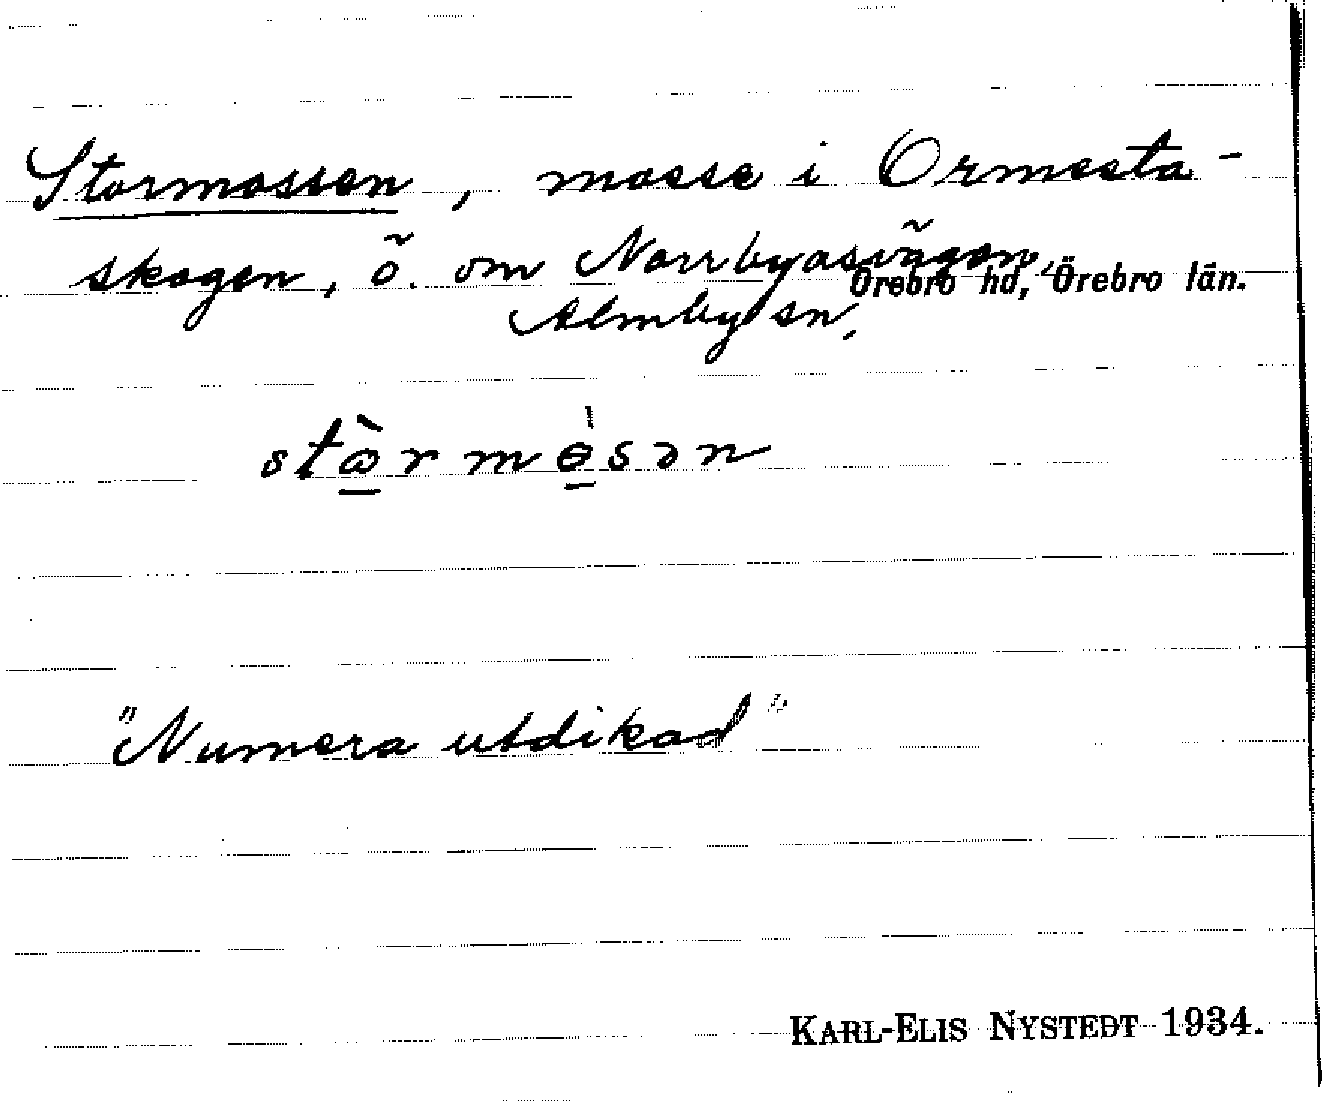 Stormossen, mosse i Ormesta-
skogen, ö. om Norrbyåsvägen,
Örebro hd, Örebro län.
Almby sn,
stɷ̀rmɵ̀sən
"Numera utdikad"
KARL-ELIS NYSTEDT 1934.